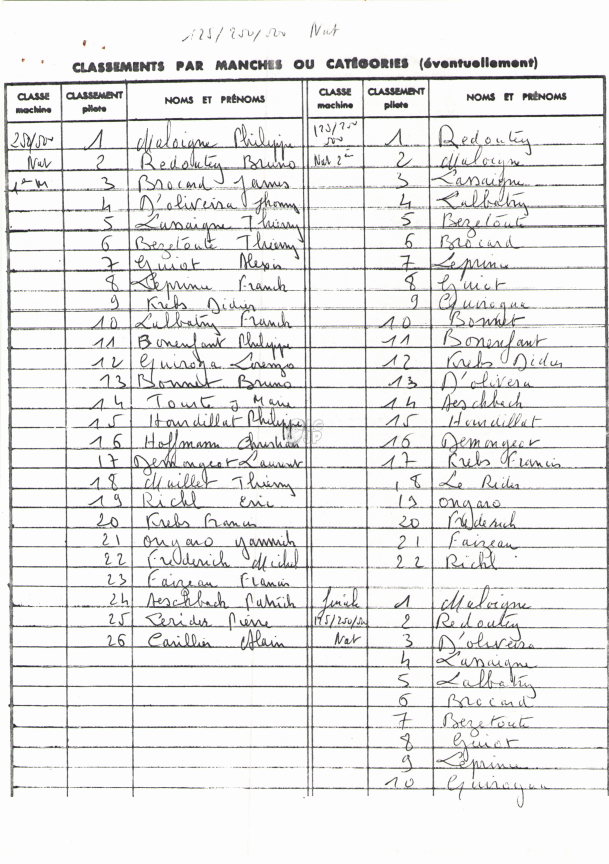 125/250/500 Nat
CLASSEMENTS PAR MANCHES OU CATÉGORIES (éventuellement)
CLASSE machine CLASSEMENT pilote NOMS ET PRÉNOMS
250/500 1 Maloigne Philippe
Nat 2 Redoutey Bruno
1ère M 3 Brocard James
4 D'oliveira Jhonny
5 Lassaigne Thierry
6 Bezetoute Thierry
7 Guiot Alexis
8 Leprince Franck
9 Krebs Didier
10 Lalbatry Franck
11 Bonenfant Philippe
12 Guiroga Lorenzo
13 Bonnet Bruno
14 Tourte J Marie
15 Houdillat Philippe
16 Hoffmann Christian
17 Demongeot Laurent
18 Maillet Thierry
19 Richl Eric
20 Krebs Francis
21 Ongaro Yannick
22 Frederich Michel
23 Faizeau Francis
24 Aeschbach Patrick
25 Lerider Pierre
26 Carillier Alain
CLASSE machine CLASSEMENT pilote NOMS ET PRÉNOMS
125/250 500 1 Redoutey
Nat 2è 2 Maloigne
3 Lassaigne
4 Lalbatry
5 Bezetoute
6 Brocard
7 Leprince
8 Guiot
9 Guirogue
10 Bonnet
11 Bonenfant
12 Krebs Didier
13 D'olivera
14 Aeschbach
15 Houdillat
16 Demongeot
17 Krebs Francis
18 Le Rider
19 Ongaro
20 Frederich
21 Faizeau
22 Richl
finale 1 Maloigne
125/250/500 2 Redoutey
Nat 3 D'oliveira
4 Lassaigne
5 Lalbatry
6 Brocard
7 Bezetoute
8 Guiot
9 Leprince
10 Guirogue